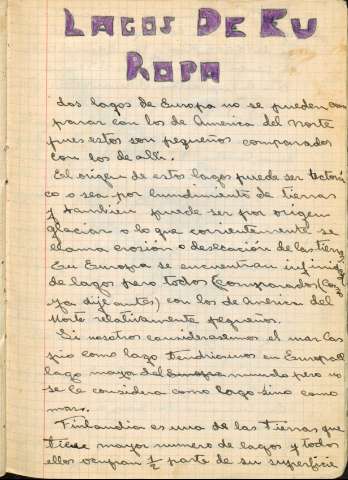 LAGOS DE EU
ROPA
Los lagos de Europa no se pueden com
parar con los de America del Norte
pues estos son pequeños comparados
con los de alli.
El origen de estos lagos puede ser tectoni
co o sea por hundimiento de tierras
y tambien puede ser por origen
glaciar o lo que corrientemente se
llama erosión o desecación de las tierras
En Europa se encuentran infinidad
de lagos pero todos (comparados (como
ya dije antes) con los de America del
Norte relativamente pequeños.
Si nosotros consideraramos el mar Cas
pio como lago tendriamos en Europa el
lago mayor del mundo pero no
se le considera como lago sino como
mar.
Finlandia es una de las tierras que
tiene mayor numero de lagos y todos
ellos ocupan 1/2 parte de su superficie